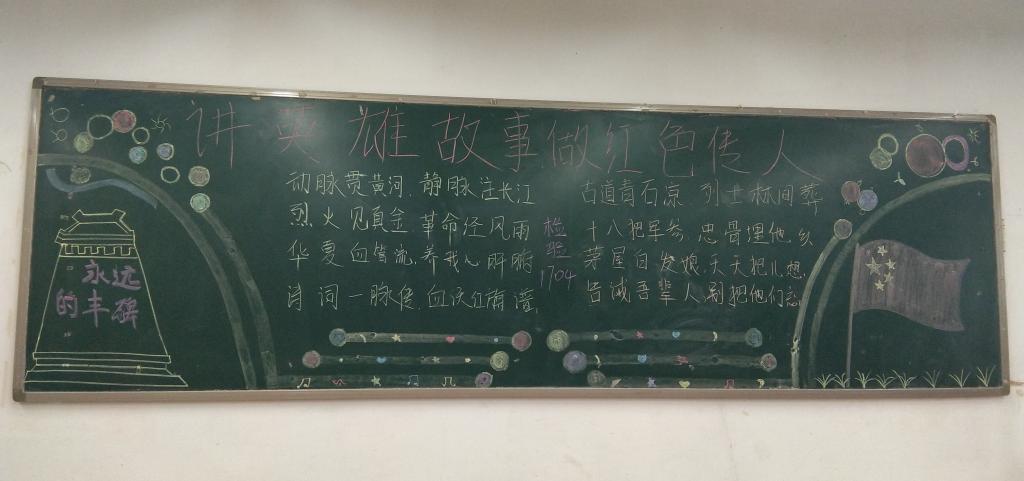 讲英雄故事做红色传人
动脉贯黄河,静脉注长江
烈火见真金,革命经风雨
华夏血管流,养我心肝腑
诗词一脉侯,血染红南谱,
检验1704
古道青石凉,烈士林间葬
十八把军参,忠骨埋他乡
茅屋白发娘,天天把儿想,
告诫吾辈人别把他们忘
永远的丰碑